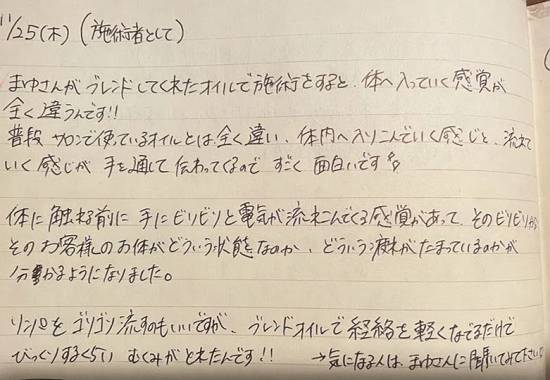 11/25(木) (施術者として)
まゆさんがブレンドしてくれたオイルで施術をすると、体へ入っていく感覚が
全く違うんです!!
普段サロンで使っているオイルとは全く違い、体内へ入りこんでいく感じと、流れて
いく感じが手を通して伝わってくるのですごく面白いです
体に触れる前に手にビリビリと電気が流れこんでくる感覚があって、そのビリビリから
そのお客様のお体がどういう状態なのか、どういう疲れがたまっているのかが
分かるようになりました。
リンパをゴリゴリ流すのもいいですが、ブレンドオイルで経絡を軽くなでるだけで
びっくりするくらいむくみがとれたんです!! →気になる人はまゆさんに聞いてみて下さい